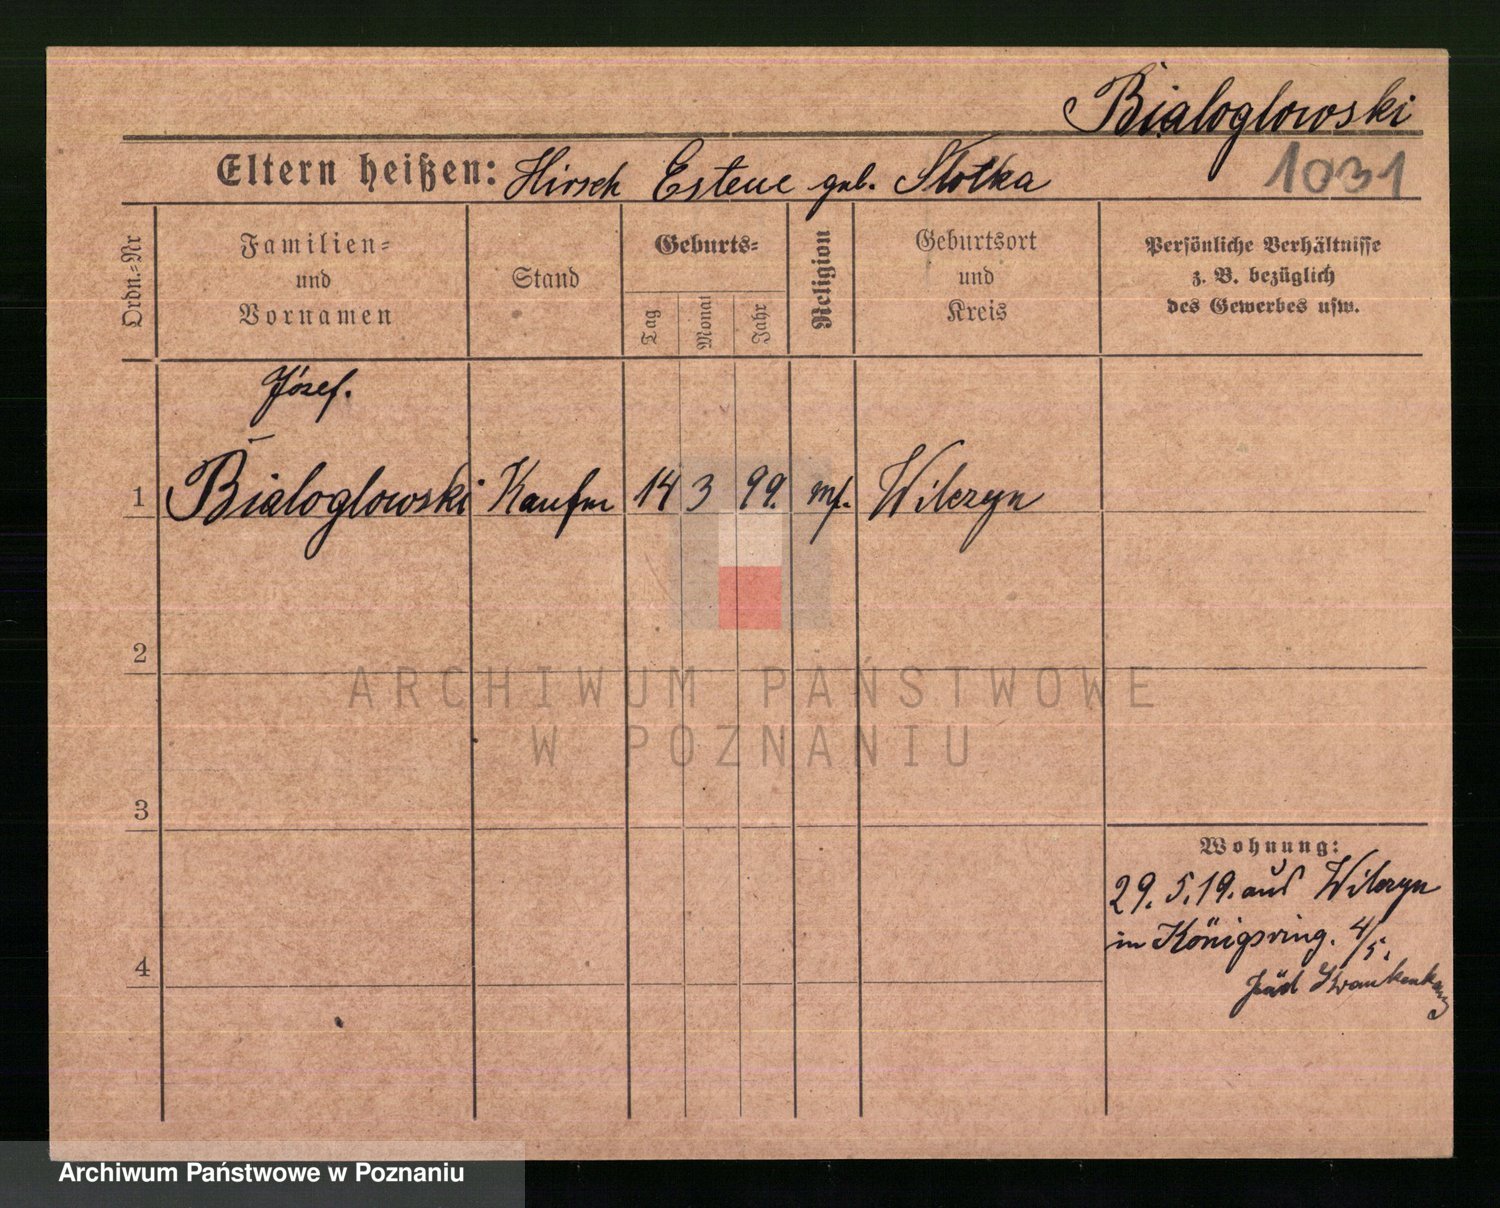 Bialoglowski
Eltern heißen: Hirsch Estene geb. Slotka
1031
Ordn.=Nr
Familien=
und
Vornamen
Stand
Geburts=
Tag
Monat
Jahr
Religion
Geburtsort
und
Kreis
Persönliche Verhältnisse
z. B. bezüglich
des Gewerbes usw.
Józef.
1 Bialoglowski Kaufm 14 3 99. mos. Wilczyn
2
3
4
Wohnung:
29.5.19. aus Wilczyn
in Königsring. 4/5.
Jüd Krankenhaus
ARCHIWUM PAŃSTWOWE
W POZNANIU
Archiwum Państwowe w Poznaniu